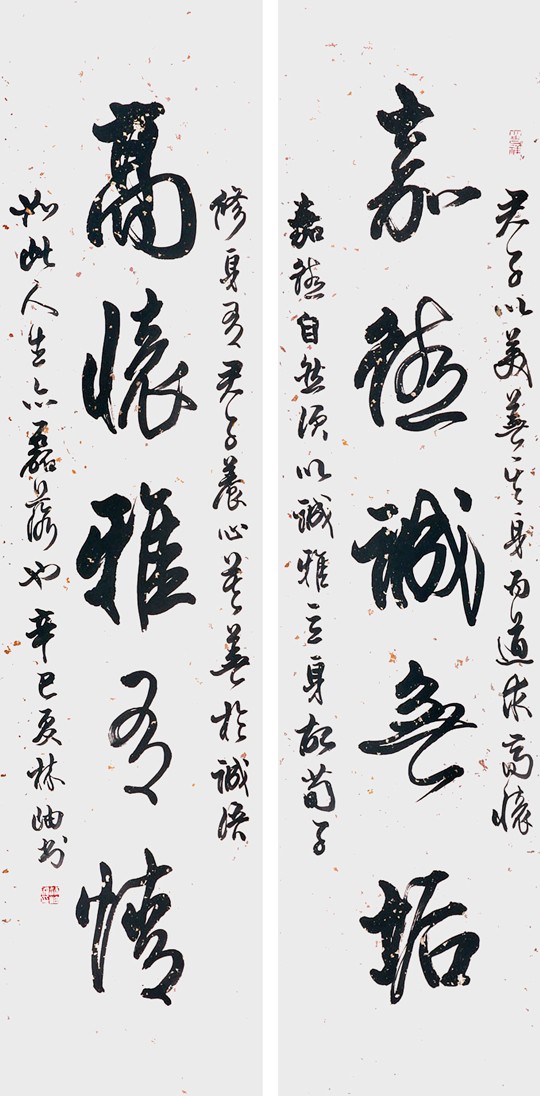 君子以美善其身而道求高懷
嘉懿誠無垢
嘉懿自然須以誠雅立身故荀子
修身有君子養心莫善於誠語
高懷雅有情
如此人生亦磊落也辛巳夏林岫書